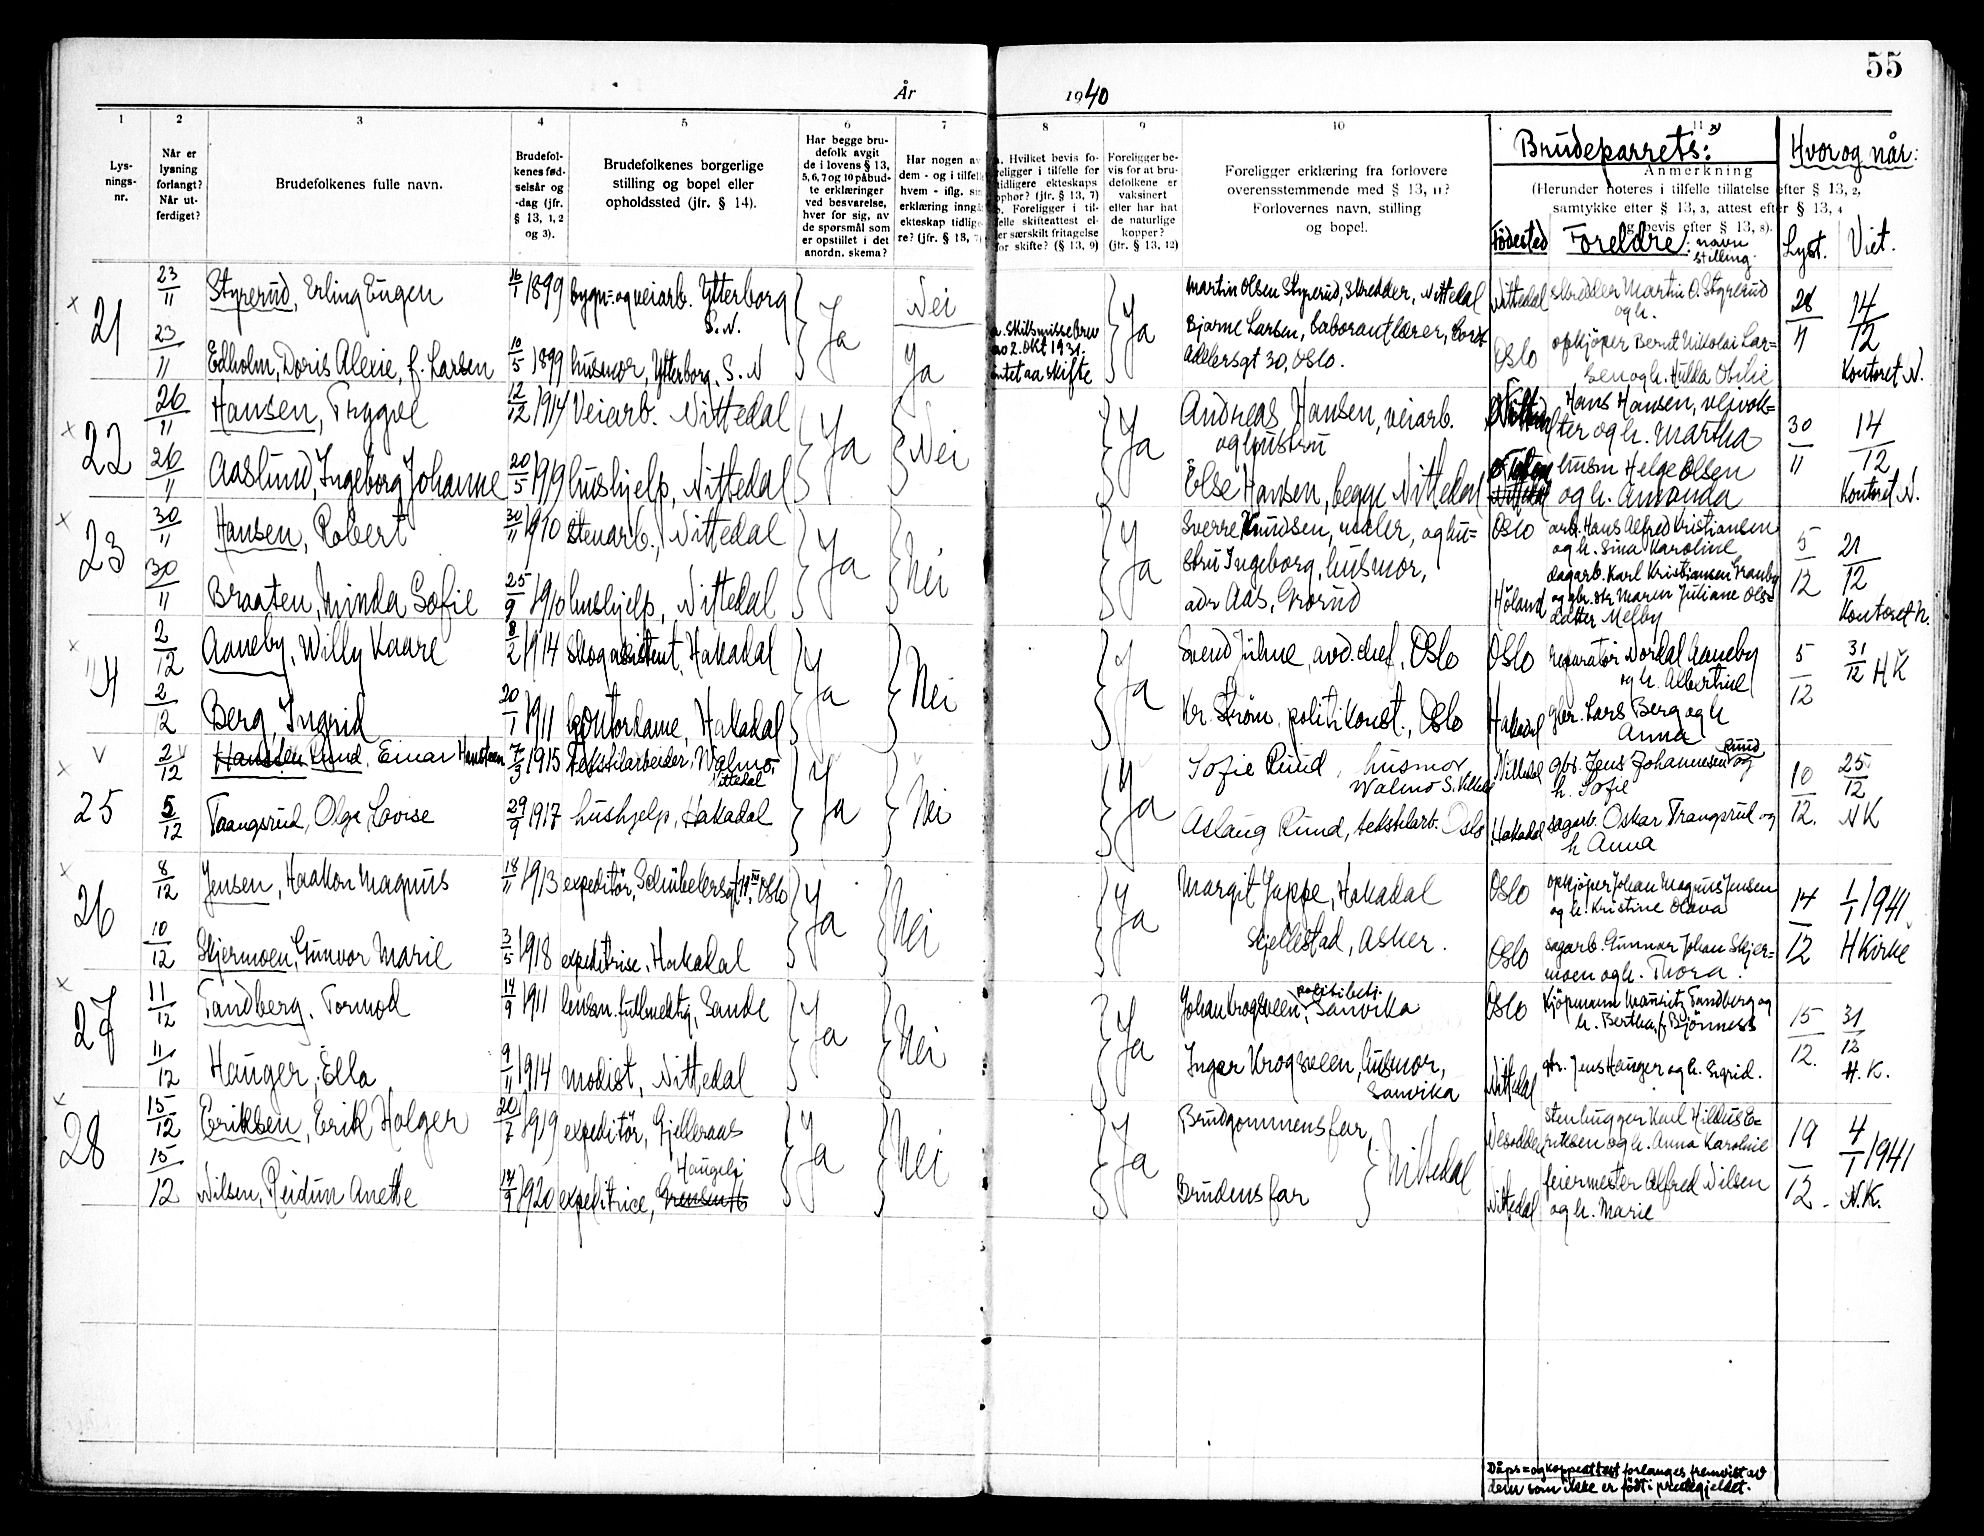 55
År 1940
1 2 3 4 5 6 7 8 9 10 11
Lys-
nings-
nr.
Når er
lysning
forlangt?
Når ut-
ferdiget?
Brudefolkenes fulle navn.
Brudefol-
kenes fød-
selsår og
-dag (jfr.
§ 13, 1, 2
og 3).
Brudefolkenes borgerlige
stilling og bopel eller
opholdssted (jfr. § 14).
Har begge bru-
defolk avgit
de i lovens § 13,
5, 6, 7 og 10 påbud-
te erklæringer
ved besvarelse,
hver for sig, av
de spørsmål som
er opstillet i det
anordn. skema?
Har nogen av
dem - og i tilfelle
hvem - iflg. sin
erklæring inngå
ekteskap tidlige-
re? (jfr. § 13, 7)
a. Hvilket bevis fo-
religger i tilfelle for
tidligere ekteskaps
ophør? (jfr. § 13, 7)
b. Foreligger i til-
felle skifteattest el-
ler særskilt fritagelse
for skifte? (§ 13, 9)
Foreligger be-
vis for at bru-
defolkene er
vaksinert
eller har hat
de naturlige
kopper?
(jfr. § 13, 12)
Foreligger erklæring fra forlovere
overensstemmende med § 13, 11?
Forlovernes navn, stilling
og bopel.
Brudeparrets:
Anmerkning
(Herunder noteres i tilfelle tillatelse efter § 13, 2,
samtykke efter § 13, 3, attest efter § 13, 4
og bevis efter § 13, 8).
Födested Foreldre: navn
stilling.
Hvor og når:
Lyst. Viet.
× 21
23/11 Styrerud, Erling Eugen 16/1 1899 bygn.- og veiarb. Ytterborg
S.N.
Ja Nei
Martin Olsen Styrerud, skredder, Nittedal
Nittedal skredder Martin O. Styrerud
og h.
28/11 14/12
23/11 Edholm, Doris Alexie, f. Larsen 10/5 1899 husmor, Ytterborg, S.N
Ja
a. Skilsmissebrev
2. Okt 1931.
intet aa skifte
Ja
Bjarne Larsen, laborantlærer, Cort
Adelersgt 30, Oslo.
Oslo opkjöper Bernt Nikolai Lar=
sen og h. Hulda Obelie
Kontoret N.
× 22
26/11 Hansen, Trygve 12/12 1914 Veiarb. Nittedal
Ja Nei Ja
Andreas Hansen, veiarb.
og hustru
Hans Hansen, veivok=
ter og h. Martha
30/11 14/12
26/11 Aaslund, Ingeborg Johanne 20/5 1919 hushjelp, Nittedal
Else Hansen, begge Nittedal
husm Helge Olsen
og h. Amanda
Kontoret N.
× 23
30/11 Hansen, Robert 30/11 1910 stenarb., Nittedal
Ja Nei Ja
Sverre Knudsen, maler, og hu=
stru Ingeborg, husmor,
adr Aas, Grorud
Oslo arb. Hans Alfred Kristiansen
og h. Sina Karoline
5/12 21/12
30/11 Braaten, Minda Sofie 25/9 1910 hushjelp, Nittedal
Höland dagarb. Karl Kristiansen Granby
og gbr.dtr Maren Juliane Ols=
datter Melby
Kontoret N.
× "4
2/12 Aaneby, Willy Kaare 8/2 1914 Skogassistent, Hakadal
Ja Nei Ja
Svend Jühne, avd.chef, Oslo
Oslo reparatör Nordal Aaneby
og h. Albertine
5/12 31/12 HK
2/12 Berg, Ingrid 20/1 1911 kontordame, Hakadal
Kr. Ström, politikonst., Oslo
Hakadal gbr. Lars Berg og h
Anna
× 25
2/12 Ruud, Einar Hansteen 7/3 1915 Tekstilarbeider, Walmo,
Nittedal
Ja Nei Ja
Sofie Ruud, husmor
Walmo S.
Nittedal gbr. Jens Johannesen Ruud og
h. Sofie
10/12. 25/12
NK
5/12 Taangsrud, Olga Lovise 29/9 1917 hushjelp, Hakadal
Aslaug Ruud, tekstilarb. Oslo
Hakadal sagarb. Oskar Trangsrud og
h Anna
× 26
8/12 Jensen, Haakon Magnus 18/11 1913 expeditör, Schübelersgt 14, Oslo
Ja Nei Ja
Margit Jappe, Hakadal
Skjellestad, Asker.
Oslo opkjöper Johan Magnus Jensen
og h. Kristine Olava
14/12 1/1 1941
H Kirke
10/12 Skjermoen, Gunvor Marie 3/5 1918 expeditrise, Hakadal
Oslo sagarb. Gunnar Johan Skjer=
moen og h. Thora.
× 27
11/12 Tandberg, Tormod 14/9 1911 lensm. fullmektig, Sande
Ja Nei Ja
Johan Krogsveen, politibetj. Sanvika
Oslo Kjöpmann Mauritz Tandberg og
h. Bertha, f. Björnness
15/12. 31/12
H.K.
11/12 Hauger, Ella 9/11 1914 modist, Nittedal
Inger Krogsveen, husmor,
Sanvika
Nittedal gbr. Jens Hauger og h. Sigrid.
× 28
15/12 Eriksen, Erik Holger 20/7 1919 expeditör, Gjelleraas
Ja Nei Ja
Brudgommens far, Nittedal
Nesodden stenhugger Karl Hilkus E=
riksen og h. Anna Karoline
19/12. 4/1 1941
N.K.
15/12 Nilsen, Reidun Anette 14/9 1920 expeditrice, Haugeli
Brudens far
Nittedal feiermester Alfred Nilsen
og h. Marie
Dåps= og koppeattest forlanges fremvist av
dem som ikke er födt i prestegjeldet.